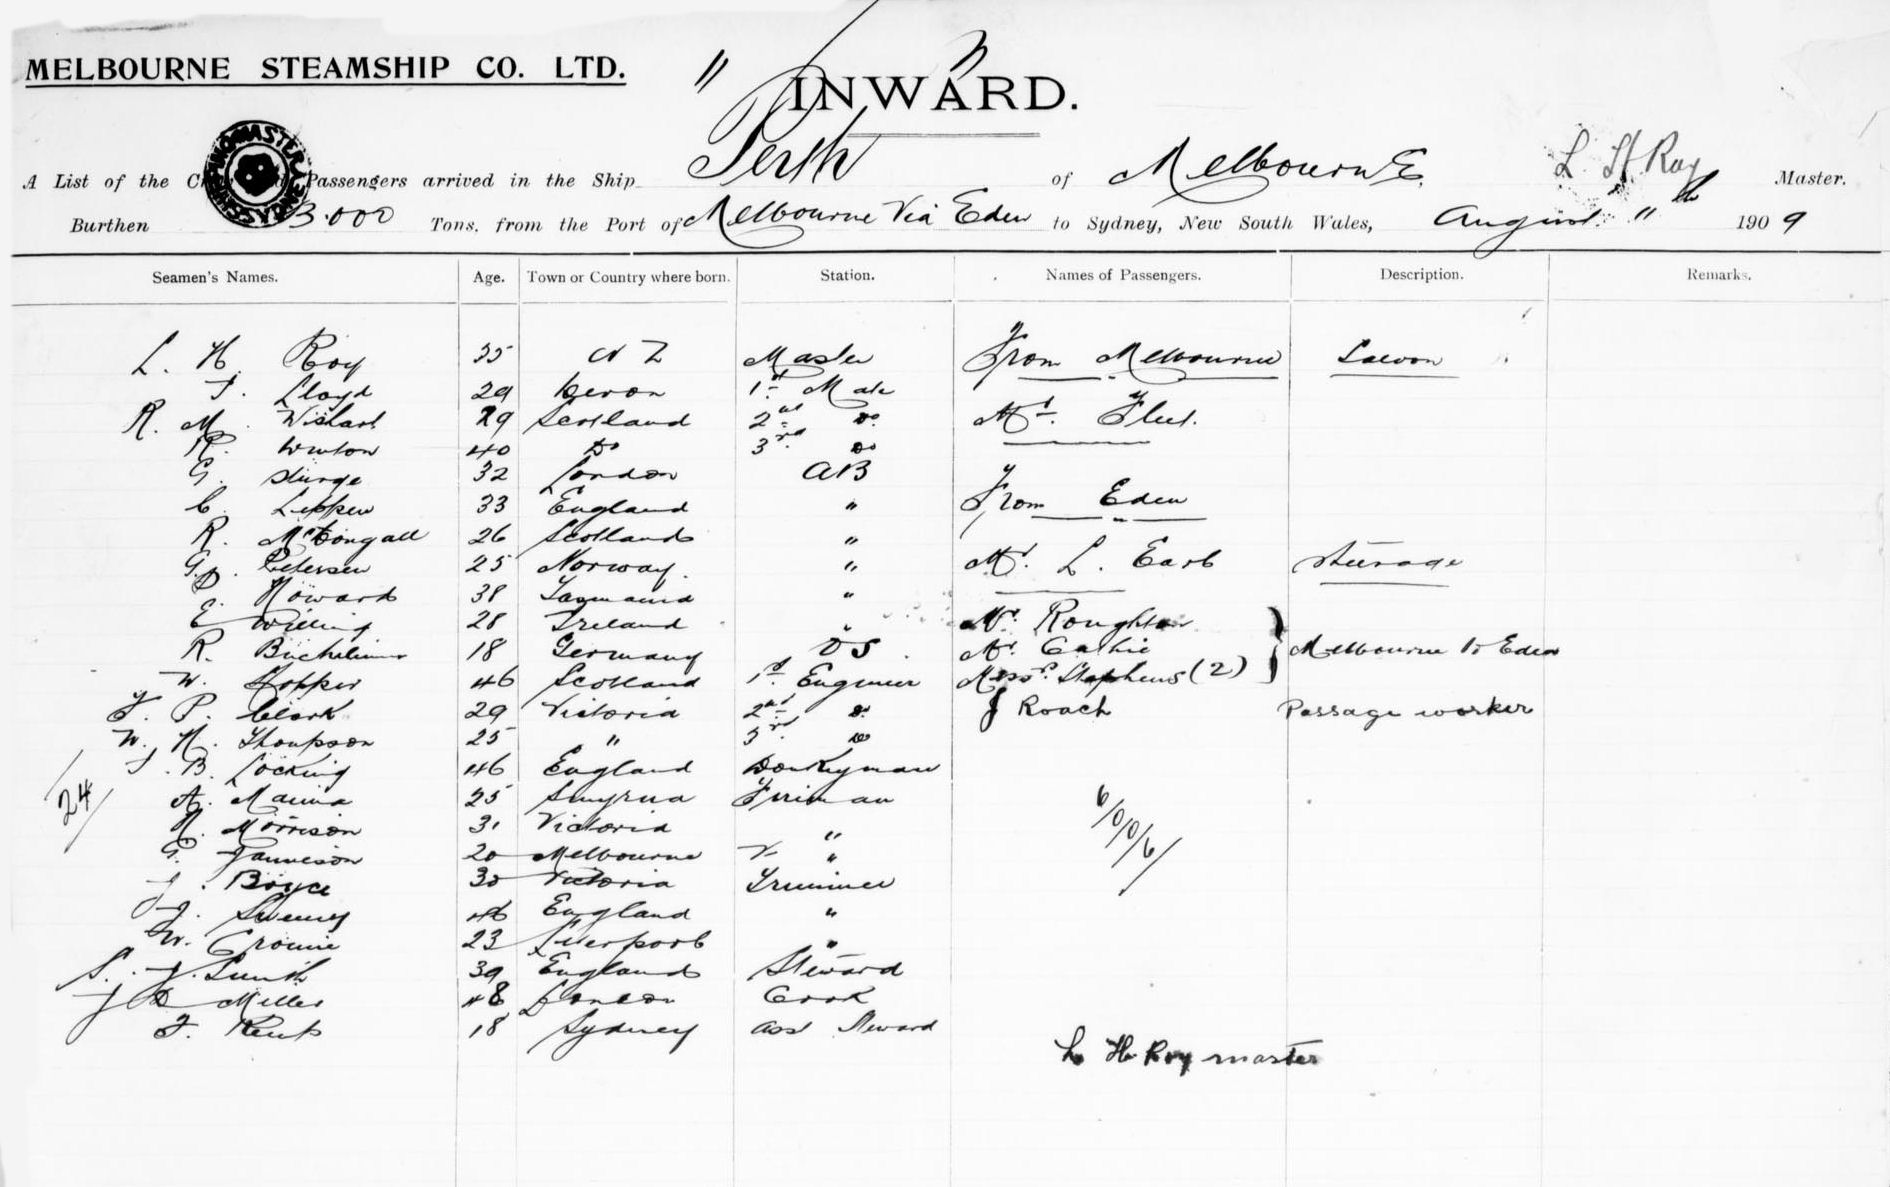 MELBOURNE STEAMSHIP CO. LTD.
INWARD.
A List of the Passengers arrived in the Ship "Perth" of Melbourne. L H Roy Master.
Burthen 3.000 Tons. from the Port of Melbourne Via Eden to Sydney, New South Wales, August 11th 1909
Seamen's Names. Age. Town or Country where born. Station. Names of Passengers. Description. Remarks.
L. H. Roy 35 N Z Master From Melbourne Saloon
Lloyd 29 Devon 1st Mate
R. M. Wishart 29 Scotland 2nd Do. Mr. Fleet.
R. Winton 40 Do 3rd Do
G. Sturge 32 London AB
C. Leppen 33 England " From Eden
R. McDougall 26 Scotland "
G. Petersen 25 Norway. " Mr. L. Earl Steerage
D. Howard 38 Tasmania "
E. Willing 28 Ireland " Mr. Roughton
R. 18 Germany OS. Mr. Cathie Melbourne to Eden
W. Hopper 46 Scotland 1st Engineer Messrs. Stephens (2)
F. P. Clark 29 Victoria 2nd Do J Roach Passage worker
W. H. Thompson 25 " 3rd Do
B. Locking 46 England Donkeyman
24/
A. Manna 25 Smyrna Fireman 6/0/0/6/
H. Morrison 31 Victoria "
G. Jamieson 20 Melbourne "
J. Boyce 30 Victoria Trimmer
J. Sweeney 46 England "
W. Cromie 23 Liverpool "
S. J. Smith 39 England Steward
J D Miller 48 London Cook
F. Kent 18 Sydney Asst Steward
L H Roy master